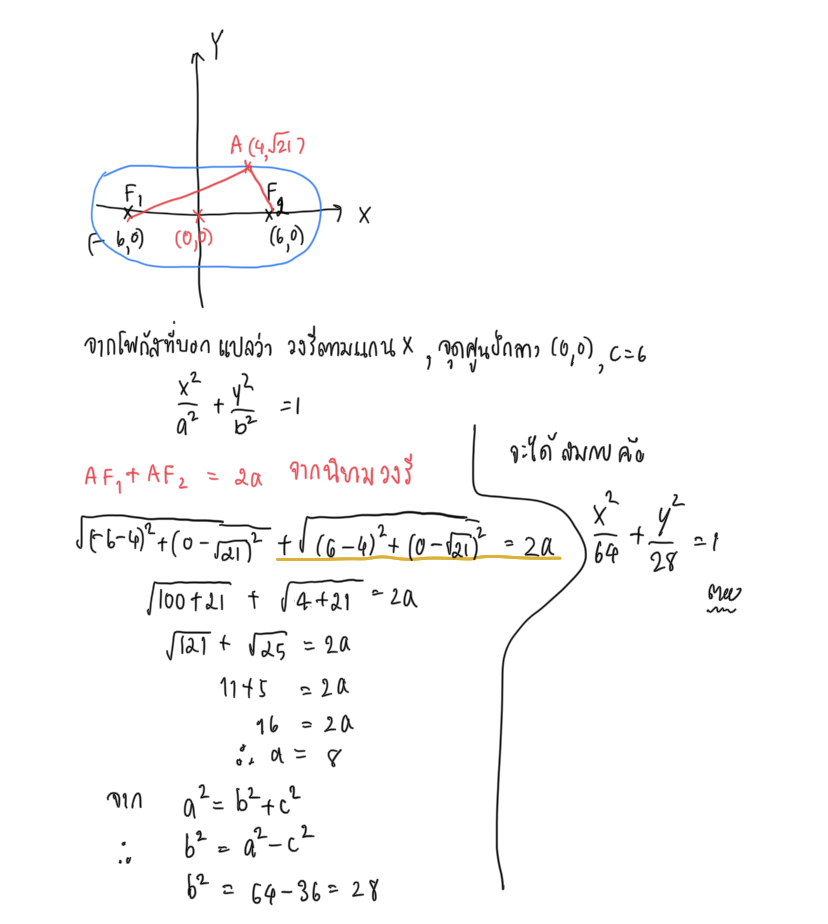 Y
A (4,√21)
F₁
F₂
X
(-6,0)
(0,0)
(6,0)
จากโฟกัสที่บอก แปลว่า วงรีตามแกน X , จุดศูนย์กลาง (0,0), c=6
x²/a² + y²/b² =1
AF₁ + AF₂ = 2a จากนิยามวงรี
√((-6-4)²+(0-√21)²) + √((6-4)²+(0-√21)²) = 2a
√(100+21) + √(4+21) = 2a
√121 + √25 = 2a
11+5 = 2a
16 = 2a
∴ a = 8
จาก a² = b²+c²
∴ b² = a²-c²
b² = 64-36 = 28
จะได้ สมการ คือ
x²/64 + y²/28 =1
ตอบ